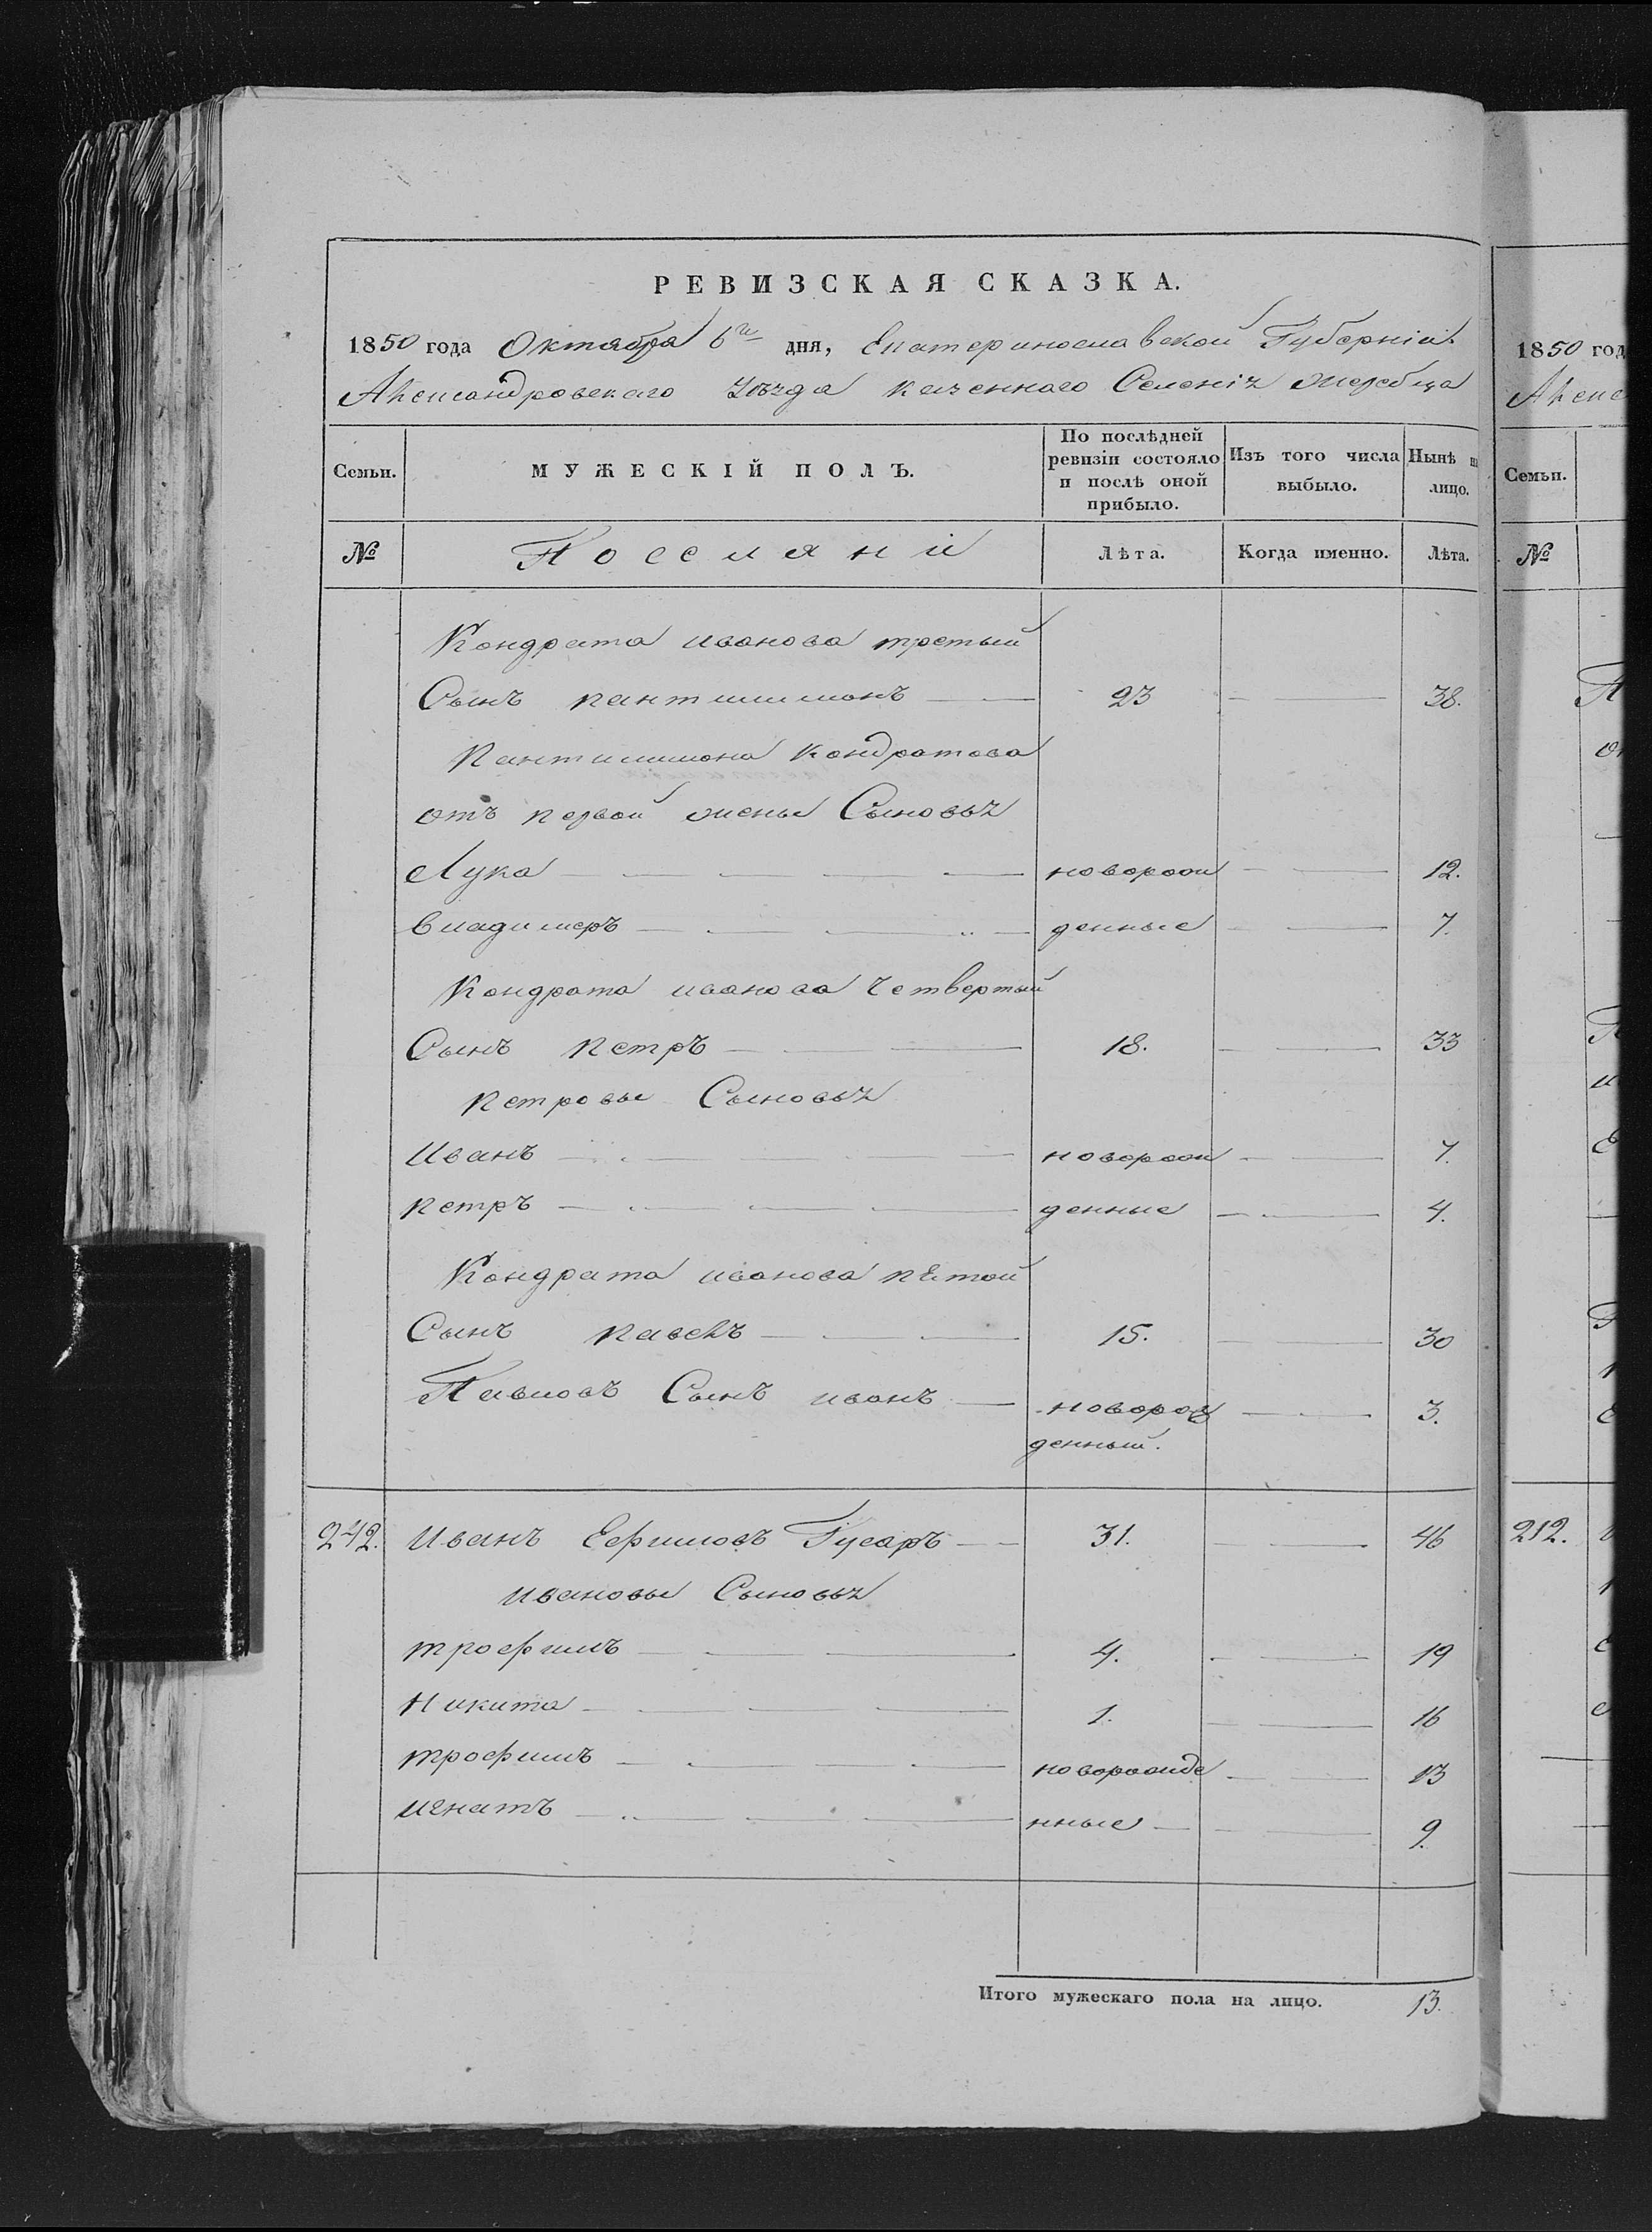 РЕВИЗСКАЯ СКАЗКА.
1850 года Октября 6го дня, Екатеринославской Губерніи
Александровскаго Уѣзда казеннаго Селенія Жеребца
Семьи. МУЖЕСКІЙ ПОЛЪ. По послѣдней ревизіи состояло и послѣ оной прибыло. Изъ того числа выбыло. Нынѣ на лицо.
№ Поселяни Лѣта. Когда именно. Лѣта.
Кондрата иванова третьий
Сынъ пантилимонъ 23 38.
Пантилимона Кондратова
отъ первой жены Сыновья
Лука оворож 12.
владимеръ денные 7.
Кондрата иванова Четвертый
Сынъ Петръ 18. 33
петровы Сыновья
Иванъ новорож 7.
петръ денные 4.
Кондрата иванова пятой
Сынъ павелъ 15. 30
Павловъ Сынъ иванъ новорож 3.
денный.
242. Иванъ Ефимовъ Гусаръ 31. 46
ивановы Сыновья
трофимъ 4. 19
Никита 1. 16
трофимъ новорожде 13
игнатъ нные 9.
Итого мужескаго пола на лицо. 13.
1850 год
Алекс
Семьи.
№
212.